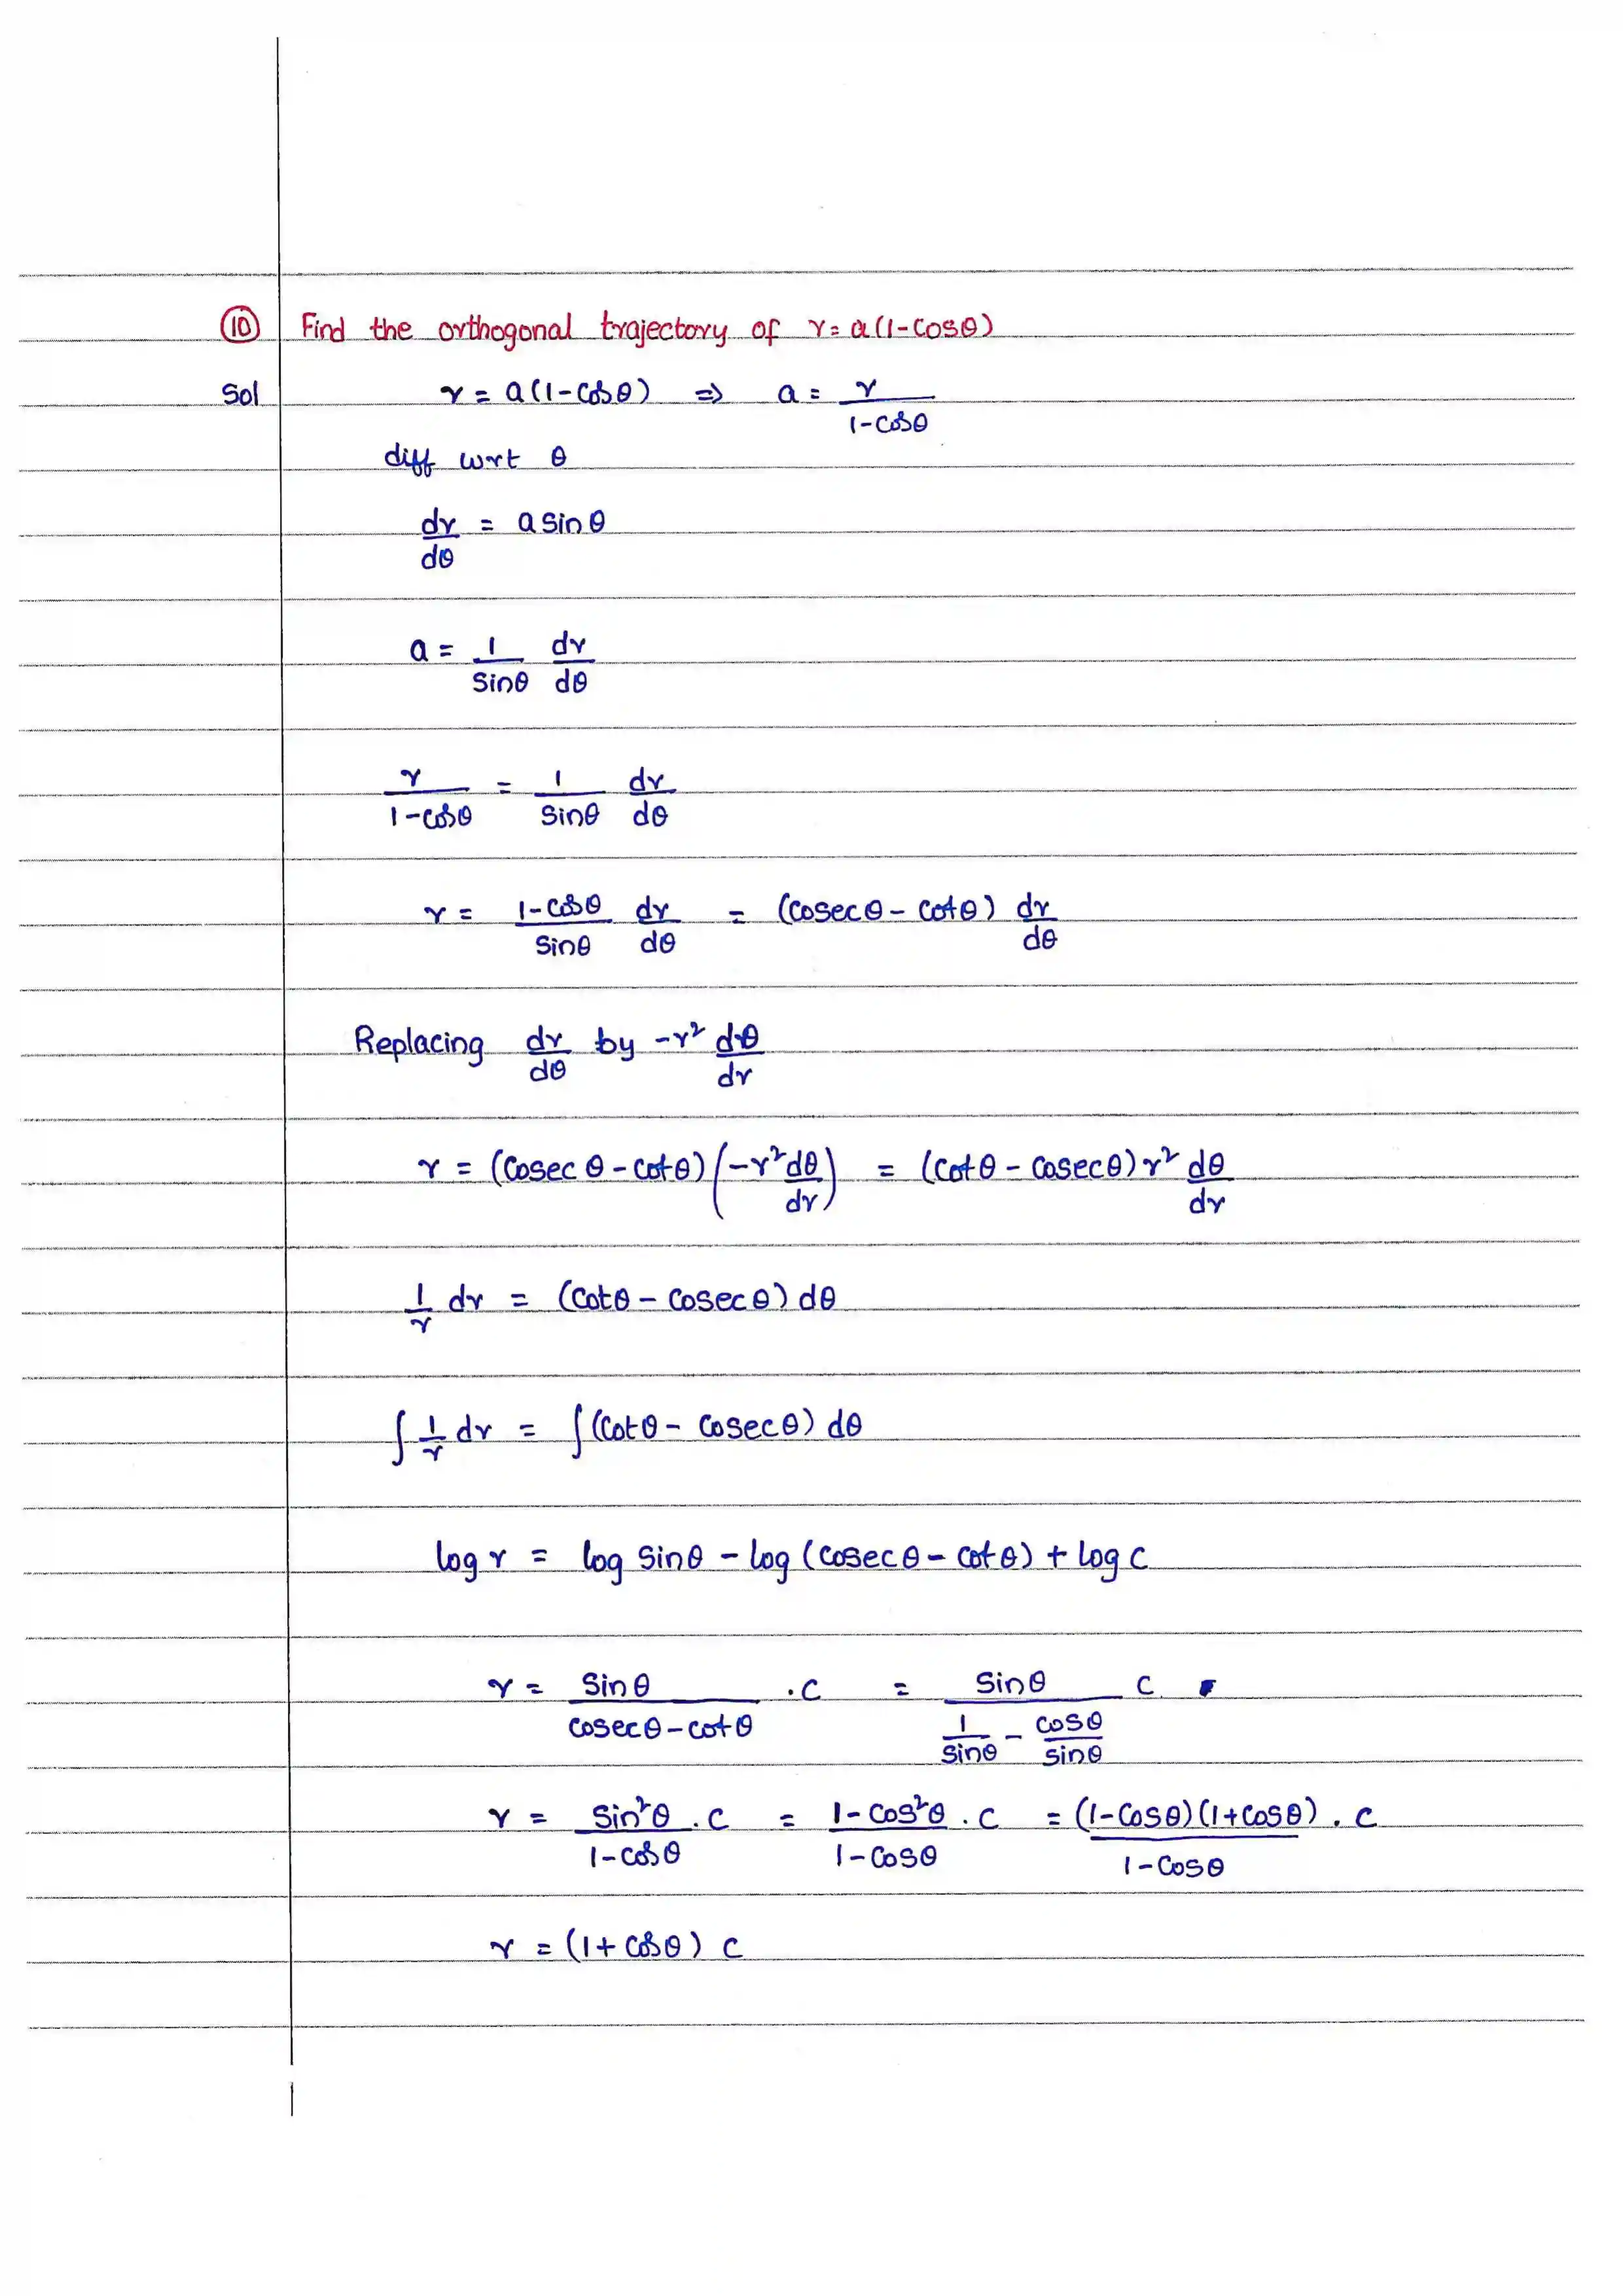 ⑩ Find the orthogonal trajectory of r = a(1-cosθ)
Sol r = a(1-cosθ) ⇒ a = r / (1-cosθ)
diff wrt θ
dr/dθ = a sinθ
a = 1/sinθ dr/dθ
r/(1-cosθ) = 1/sinθ dr/dθ
r = (1-cosθ)/sinθ dr/dθ = (cosecθ - cotθ) dr/dθ
Replacing dr/dθ by -r² dθ/dr
r = (cosec θ - cotθ)(-r² dθ/dr) = (cotθ - cosecθ) r² dθ/dr
1/r dr = (cotθ - cosecθ) dθ
∫ 1/r dr = ∫ (cotθ - cosecθ) dθ
log r = log sinθ - log (cosecθ - cotθ) + log c
r = sinθ/(cosecθ - cotθ) . c = sinθ/(1/sinθ - cosθ/sinθ) c
r = sin²θ/(1-cosθ) . c = (1-cos²θ)/(1-cosθ) . c = (1-cosθ)(1+cosθ)/(1-cosθ) . c
r = (1+cosθ) c